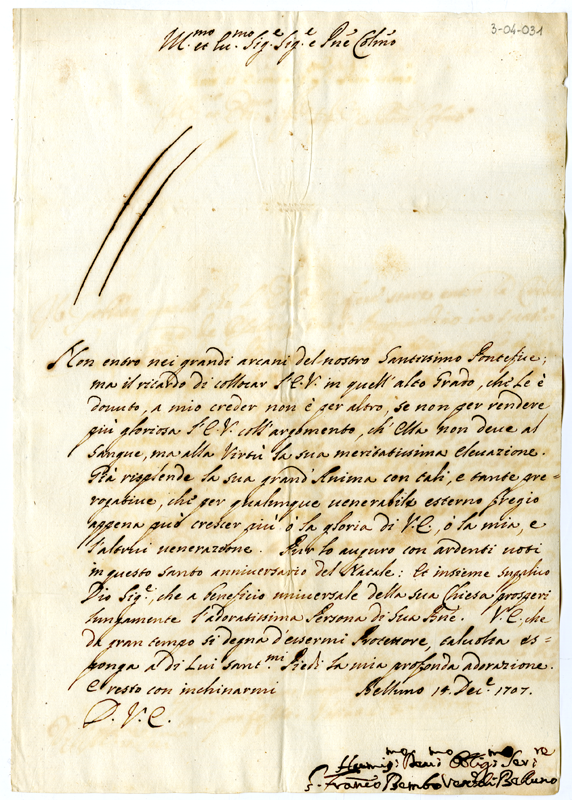 3-04-031
Ill.mo et Rev.mo Sig.e Sig.e e Pne Colmo
Non entro nei grandi arcani del nostro Santissimo Pontefice;
ma il ritardo di collocar l'E.V. in quell'alto Grado, che Le è
dovuto, a mio creder non è per altro, se non per rendere
più gloriosa l'E.V. coll'argomento, ch'Ella non deve al
Sangue, ma alla Virtù la sua meritatissima elevazione.
Già risplende la sua grand'Anima con tali, e tante pre=
rogative, che per qualunque venerabile esterno fregio
appena può crescer più ò la gloria di V.E., ò la mia, e
l'altrui venerazione. Pur lo auguro con ardenti voti
in questo santo anniversario del Natale: Et insieme supplico
Dio Sig.e, che a beneficio universale della sua Chiesa prosperi
lungamente l'adoratissima Persona di Sua Bne. V.E., che
da gran tempo si degna d'essermi Protettore, talvolta es=
ponga a di Lui Sant.mi Piedi la mia profonda adorazione.
E resto con inchinarmi Belluno 14. Dec.e 1707.
D. V. E.
Hum.mo Dev.mo Obblig.mo Ser.re
G. Franco Bembo Vesc. di Belluno